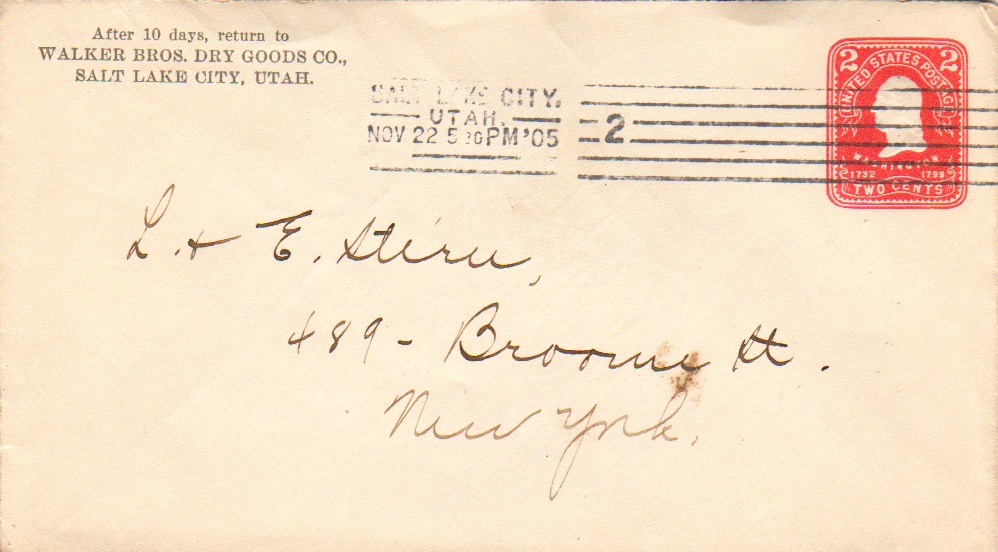 After 10 days, return to
WALKER BROS. DRY GOODS CO.,
SALT LAKE CITY, UTAH.
SALT LAKE CITY,
UTAH.
NOV 22 5 30 PM '05
2
2 2
UNITED STATES POSTAGE
WASHINGTON
1732 1799
TWO CENTS
L. & E. Stern,
489 - Broome St.
New York.